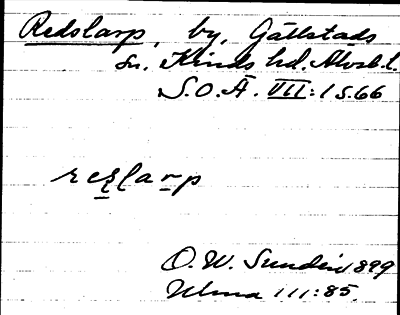 Redslarp, by, Gällstads
sn. Kinds hd. Älvsb. l.
S.O.Ä. VII:1 S.66
reslarp
O.W. Sundén 1899
Ulma 111:85.